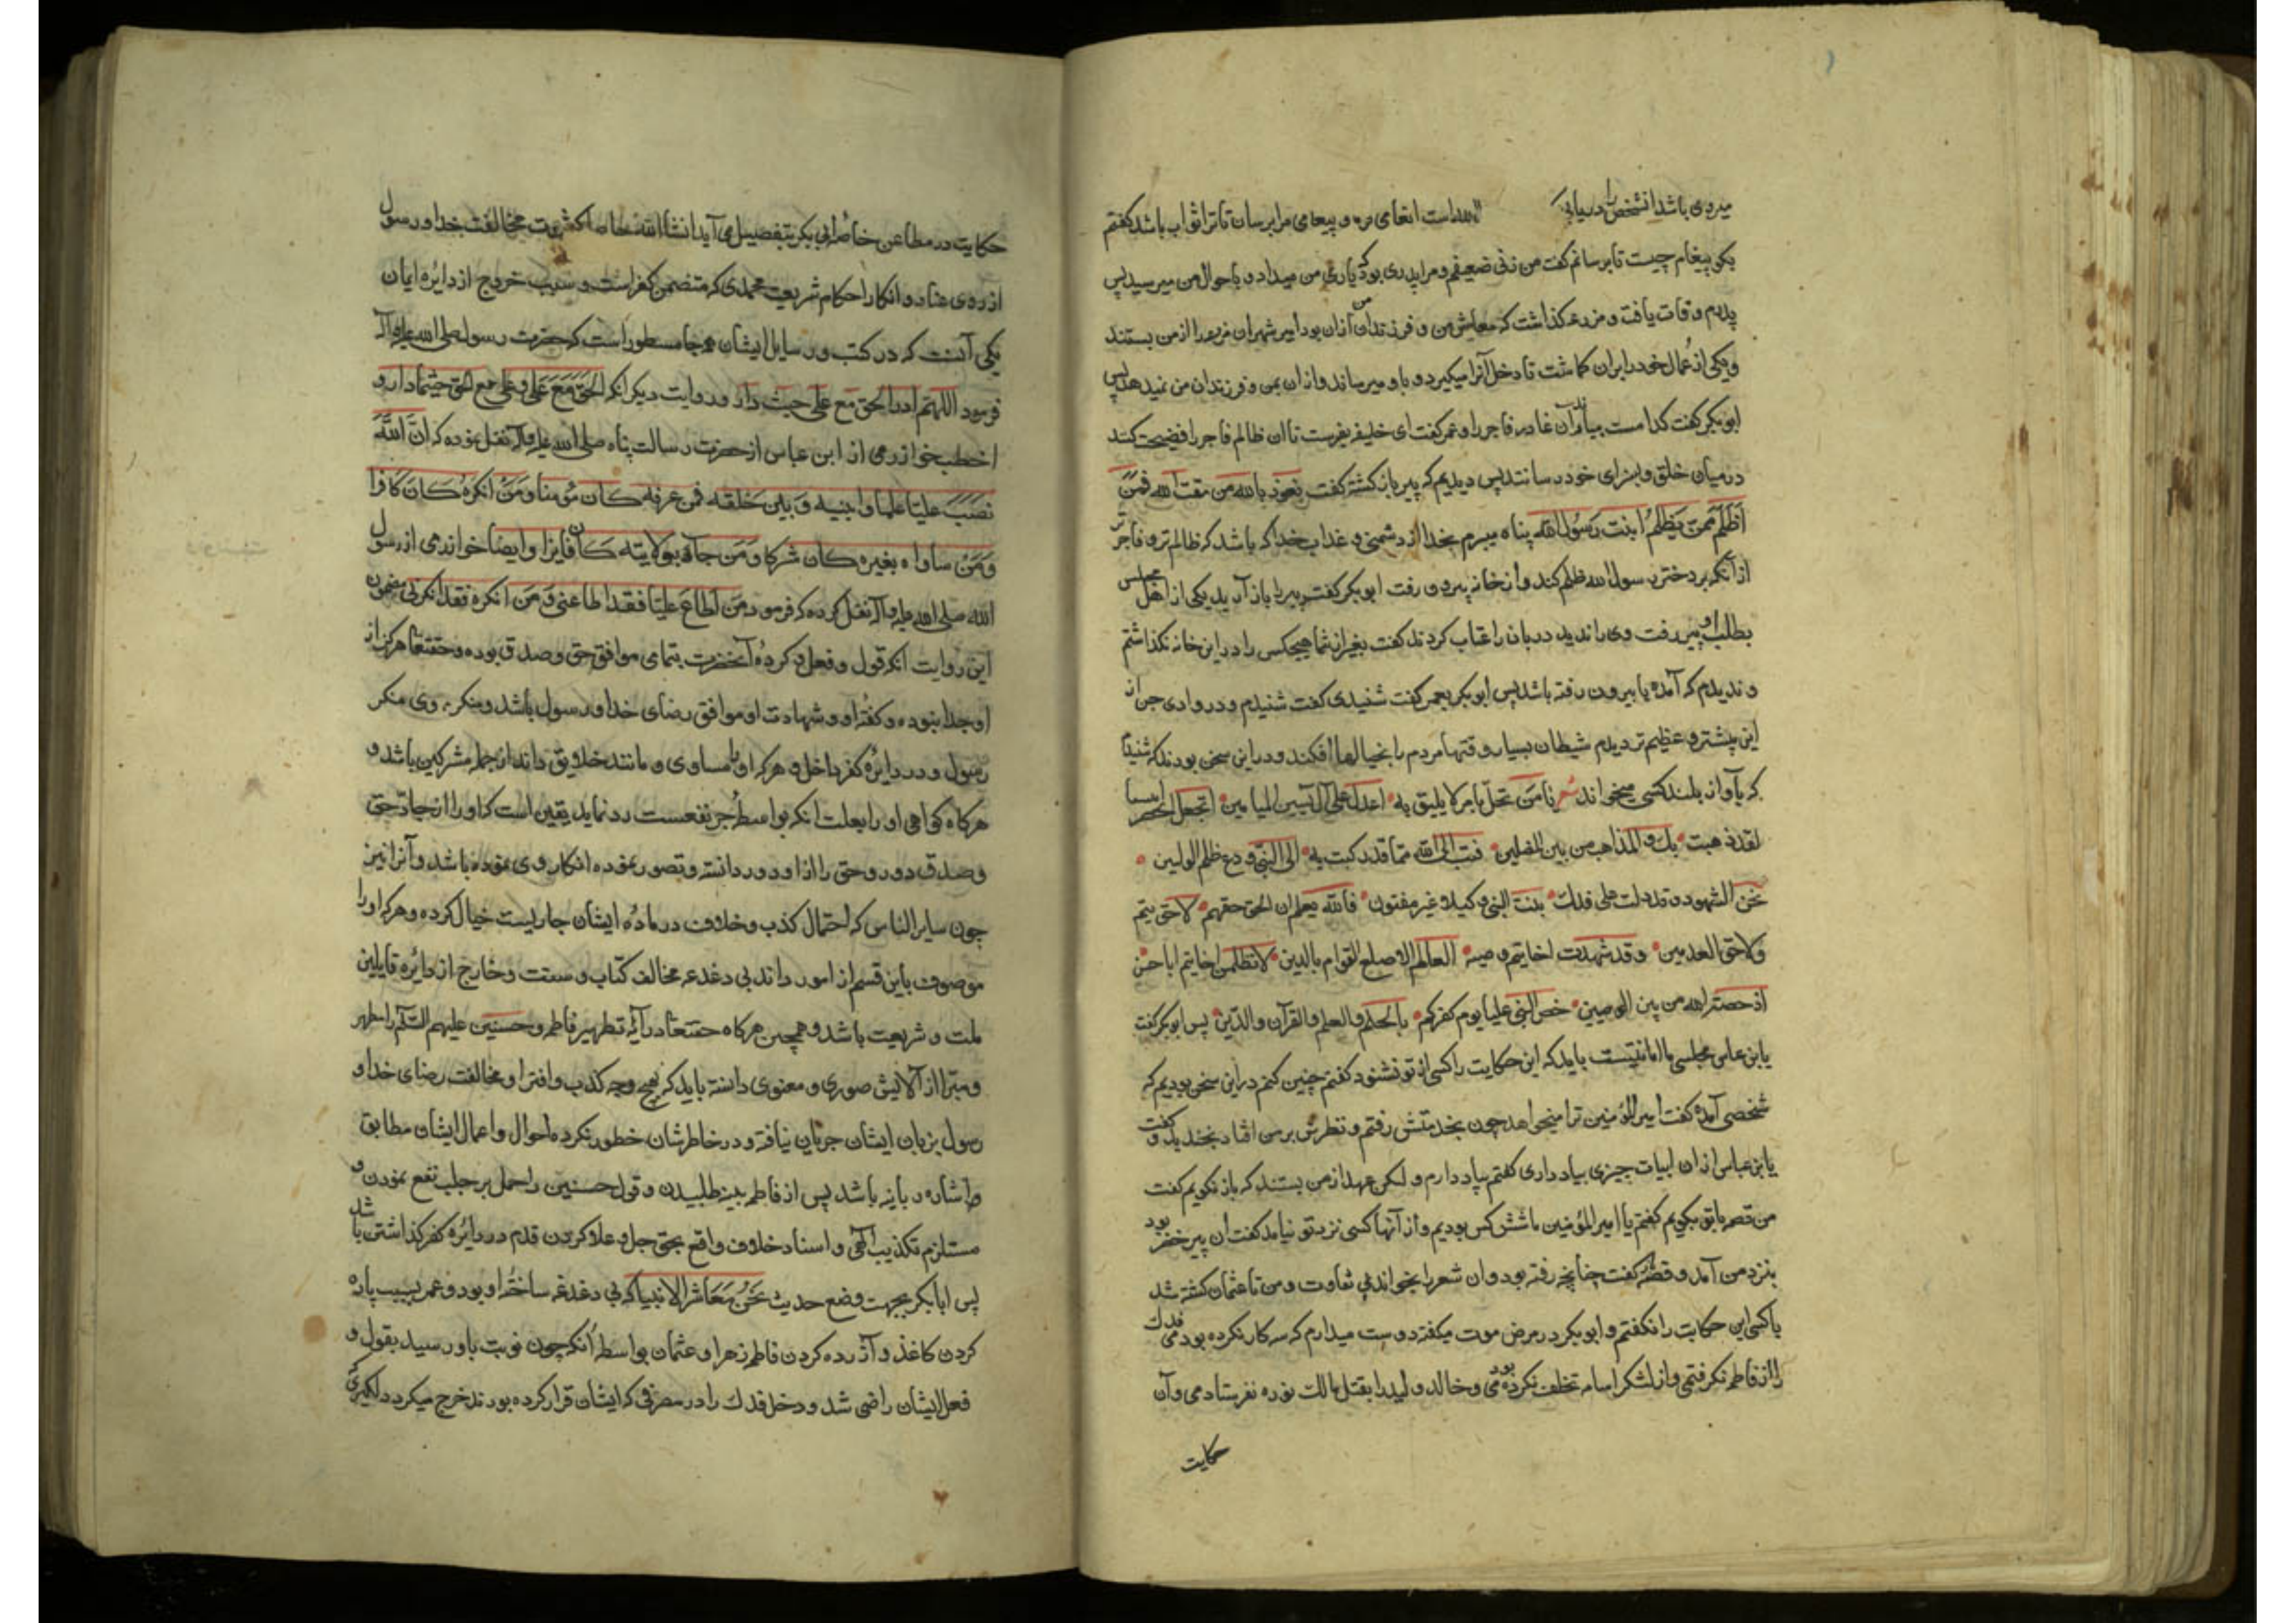 میروی باشد آن شخص را دریابی انعامی و پیغامی مرا برسان تا ترا ثواب باشد گفتم
بگو پیغام چیست تا برسانم گفت من زنی ضعیفم و مرا پدری بود که یاری من میداد و باحوال من میرسید پس
پدرم وفات یافت و مزرعه گذاشت که معاش من و فرزندان من از آن بود امیر شهر آن مزرعه را از من بستند
و یکی از عمال خود را بر آن گماشت تا دخل آنرا میگیرد و باو میرساند و از آن بمن و فرزندان من نمیدهد پس
ابوبکر گفت کدامست بیارند آن غادر فاجر را و عمر گفت ای خلیفه بفرست تا آن ظالم فاجر را فضیحت کنند
در میان خلق و بسزای خود رسانند پس دیدیم که پیر بازگشته گفت نعوذ بالله من مقت الله فمن
اظلم ممن یظلم ابنت رسول الله پناه میبرم بخدا از دشمنی و عذاب خدا که باشد که ظالم‌تر و فاجرتر
از آنکه بر دختر رسول الله ظلم کند و از خانه بیرون رفت ابوبکر گفت پیر را باز آرید یکی از اهل مجلس
بطلب او بیرون رفت وی را ندید دربان را عتاب کردند گفت بغیر از شما هیچکس را در این خانه نگذاشتم
و ندیدم که آمده یا بیرون رفته باشد پس ابوبکر بعمر گفت شنیدی گفت شنیدم و در وادی جن از
این بیشتر و عظیم‌تر دیدم شیطان بسیار وقتها مردم را بخیالها افکند و در این سخن بودند که شنیدم
که بآواز بلند کسی میخواند شعر یا من تحلّ بامر لا یلیق به اعدل علی آل یٰسین المیامین اتجعل الخضر
لقد ذهبت بک المذاهب من بین المضلین فتب الی الله مما قد رکبت به الی النبی ودع ظلم الولیین
نحن الشهود وقد دلت علی فدک بنت النبی وکیلا غیر مفتون فالله یعلم ان الحق حقهم لا حق تیم
ولا حق العدیین وقد شهدت اخا تیم وصیة العالم الاصلع القوام بالدین لا تظلمن اخا تیم ابا حسن
اذ خصه الله من بین الوصیین خص النبی علیا یوم کفرکم بالحلم والعلم والقرآن والدین پس ابوبکر گفت
یابن عباس مجلس ما امانتیست باید که این حکایت را کسی از تو نشنود گفتم چنین کنم در این سخن بودیم که
شخصی آمده گفت امیرالمؤمنین ترا میخواهد چون بخدمتش رفتم و نظرش بر من افتاد بخندید و گفت
یابن عباس از آن ابیات چیزی بیاد داری گفتم بیاد دارم و لکن عهد از من بستند که باز نگویم گفت
من قصه با تو بگویم گفتم یا امیرالمؤمنین ما شش کس بودیم و از آنها کسی نزد تو نیامد گفت آن پیر خضر بود
بنزد من آمد و قصه گفت چنانچه رفته بود و آن شعر را بخواند بی تفاوت و من تا عثمان کشته شد
با کسی این حکایت را نگفتم و ابوبکر در مرض موت میگفت دوست میدارم که سه کار نکرده بودمی فدک
را از فاطمه نگرفتمی و از لشکر اسامه تخلف نکرده بودمی و خالد ولید را بقتل مالک نویره نفرستادمی و آن
حکایت
حکایت در مطاعن خاصه ابی بکر بتفصیل می‌آید انشاالله مخالفت خدا و رسول
از روی عناد و انکار احکام شریعت محمدی که متضمن کفر است و سبب خروج از دایره ایمان
یکی آنست که در کتب و رسایل ایشان همه جا مسطور است که حضرت رسول صلی الله علیه و آله
فرمود اللهم ادر الحق مع علی حیث دار و روایت دیگر آنکه الحق مع علی و علی مع الحق حیثما دار و
اخطب خوارزمی از ابن عباس از حضرت رسالت پناه صلی الله علیه و آله نقل نموده که ان الله
نصب علیا علما بینه و بین خلقه فمن عرفه کان مؤمنا و من انکره کان کافرا
و من ساواه بغیره کان مشرکا و من جآء بولایته کان فایزا و ایضا خوارزمی از رسول
الله صلی الله علیه و آله نقل کرده که فرمود من اطاع علیا فقد اطاعنی و من انکره فقد انکرنی مضمون
این روایت آنکه قول و فعل و کرده آنحضرت بتمامی موافق حق و صدق بوده و حقتعا هرگز از
او جدا نبوده و گفته او و شهادت او موافق رضای خدا و رسول باشد و منکر وی منکر
رسول و در دایره کفر داخل و هر که او را مساوی و مانند خلایق داند از جمله مشرکین باشد و
هرگاه گواهی او را بعلت آنکه بواسطه جر نفعست رد نماید یقین است که او را از جاده حق
و صدق دور و حق را از او دور دانسته و تصور نموده انکار وی نموده باشد و آنرا نیز
چون سایر الناس که احتمال کذب و خلاف در ماده ایشان جاریست خیال کرده و هر که او را
موصوف باین قسم از امور داند بی دغدغه مخالف کتاب و سنت و خارج از دایره قایلین
ملت و شریعت باشد و همچنین هرگاه حقتعا در آیه تطهیر فاطمه و حسنین علیهم السّلام را مطهر
و مبرا از آلایش صوری و معنوی دانسته باید که بهیچ وجه کذب و افترا و مخالفت رضای خدا و
رسول بزبان ایشان جریان نیافته و در خاطرشان خطور نکرده احوال و اعمال ایشان مطابق
باشد پس از فاطمه بینه طلبیدن و قول حسنین را حمل بر جلب نفع نمودن و
مستلزم تکذیب الهی و اسناد خلاف واقع بحق جل و علا کردن قدم در دایره کفر گذاشتن باشد
پس ابابکر بجهت وضع حدیث نحن معاشر الانبیا که بی دغدغه ساخته او بود و عمر بسبب پاره
کردن کاغذ و آزرده کردن فاطمه زهرا و عثمان بواسطه آنکه چون نوبت باو رسید بقول و
فعل ایشان راضی شد و دخل فدک را در مصرفی که ایشان قرار کرده بودند خرج میکرد